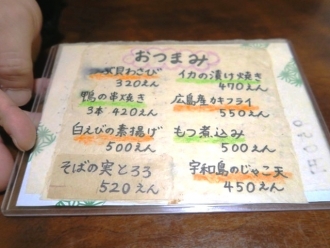 おつまみ
貝わさび
320えん
鴨の串焼き
3本 420えん
白えびの素揚げ
500えん
そばの実とろろ
520えん
イカの漬け焼き
470えん
広島産カキフライ
550えん
もつ煮込み
500えん
宇和島のじゃこ天
450えん